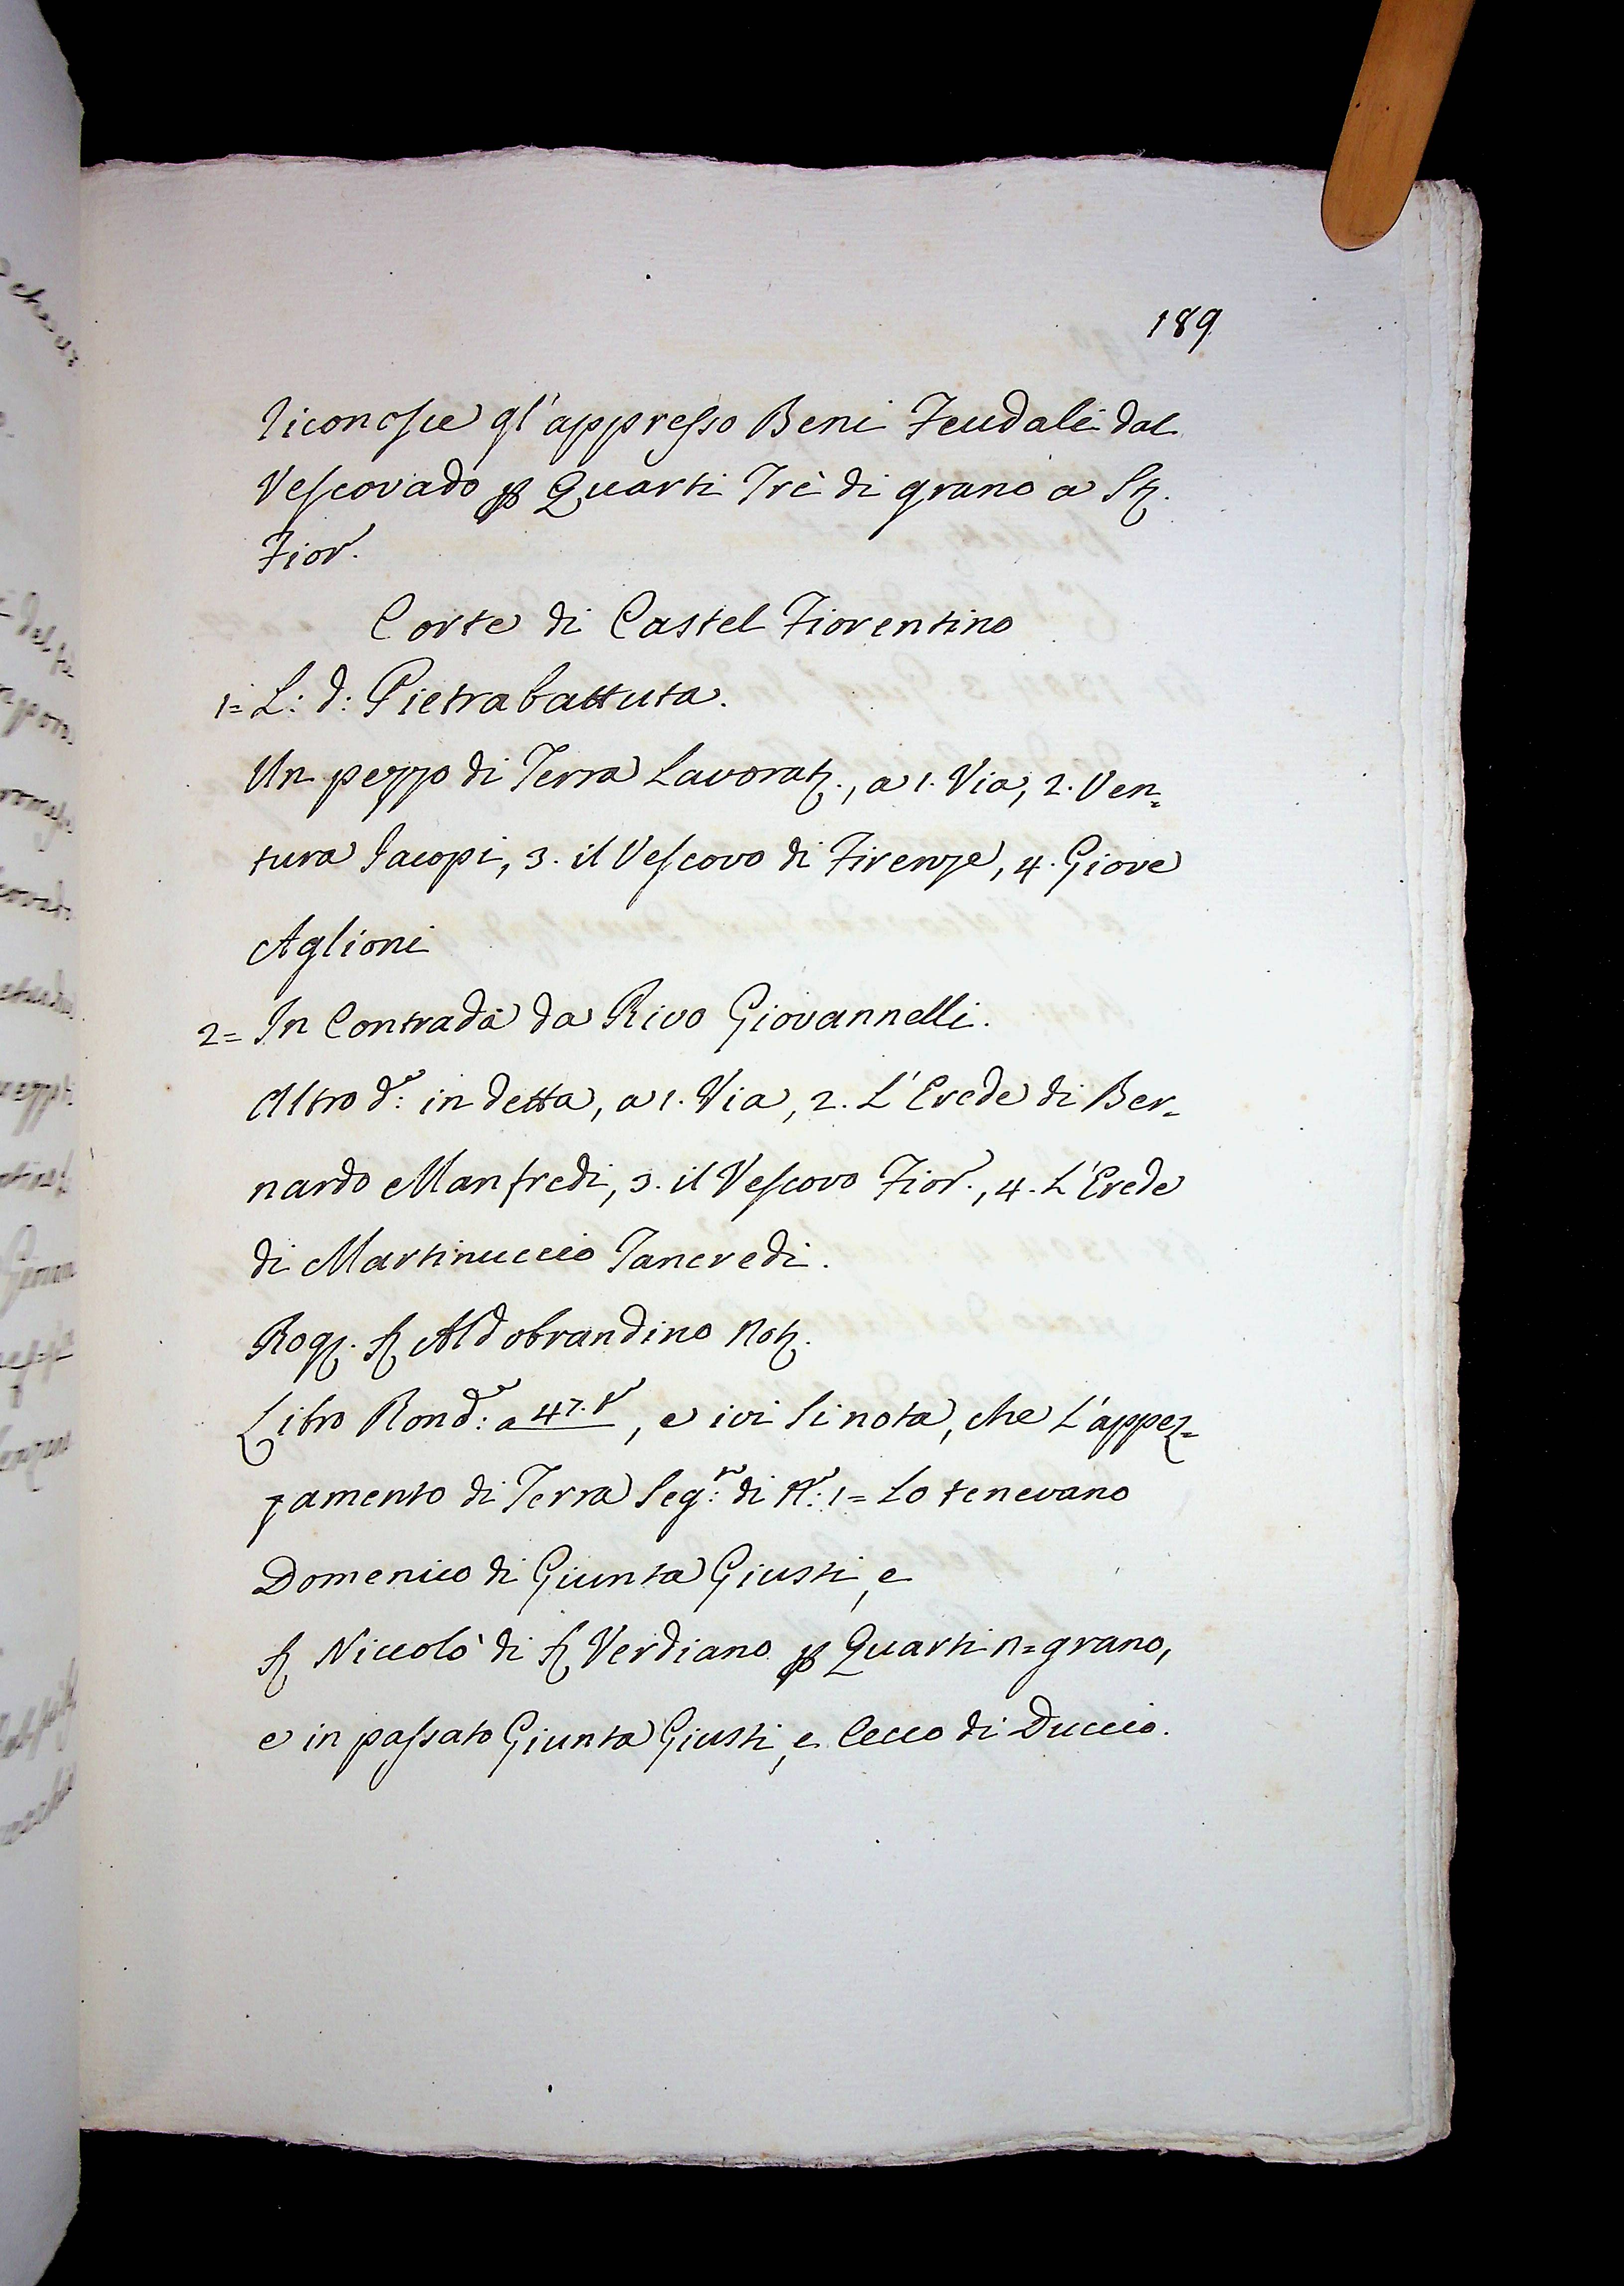 189
riconosce gl'appresso Beni Feudali dal
Vescovado p Quarti Trè di grano a St.
Fior.
Corte di Castel Fiorentino
1= L: d: Pietrabattuta.
Un pezzo di Terra Lavorat., a 1. Via, 2. Ven=
tura Jacopi, 3. il Vescovo di Firenze, 4. Giove
Aglioni
2= In Contrada da Rivo Giovannelli.
Altro d:º in detta, a 1. Via, 2. L'Erede di Ber=
nardo Manfredi, 3. il Vescovo Fior., 4. L'Erede
di Martinuccio Tancredi.
Rog. S. Aldobrandino Not.
Libro Rond:º a 47.º, e ivi si nota, che L'appez=
zamento di Terra Seg:º di N:º 1= Lo tenevano
Domenico di Giunta Giusti, e
S. Niccolò di S. Verdiano p Quarti n= grano,
e in passato Giunta Giusti, e Cecco di Duccio.